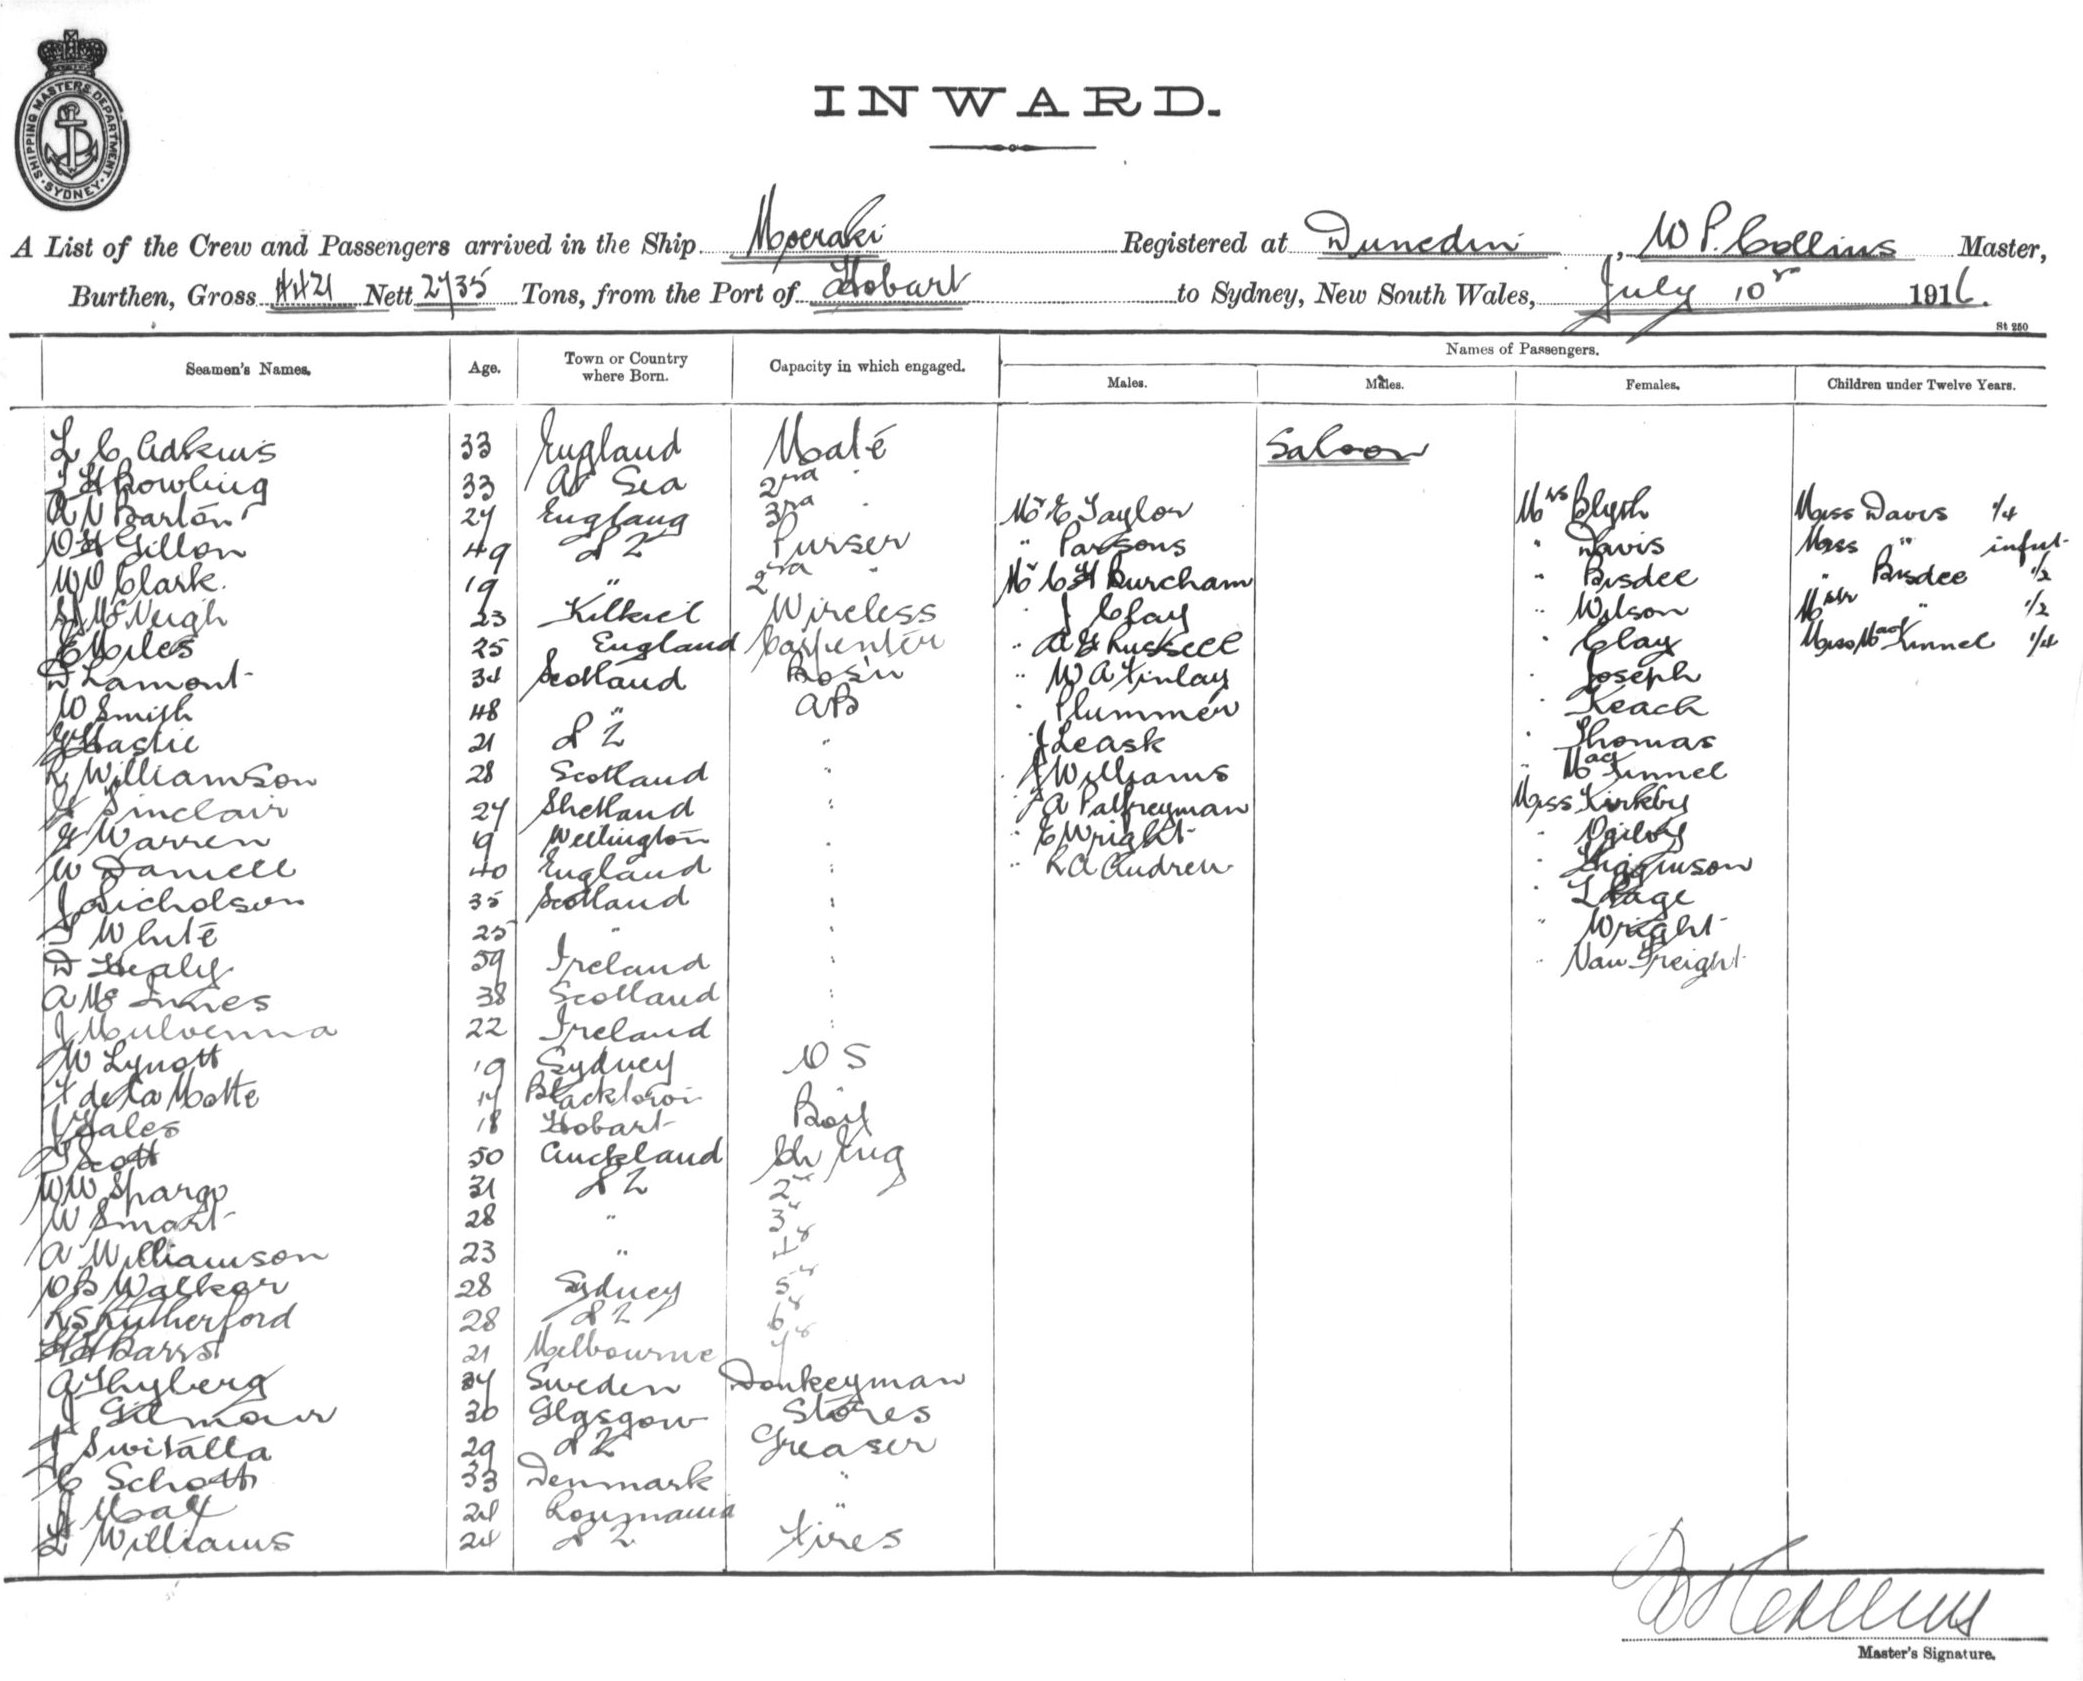 SHIPPING MASTERS DEPARTMENT
SYDNEY
INWARD.
A List of the Crew and Passengers arrived in the Ship Moeraki Registered at Dunedin, W P. Collins Master,
Burthen, Gross 4421 Nett 2735 Tons, from the Port of Hobart to Sydney, New South Wales, July 10 1916.
St 250
Names of Passengers.
Seamen's Names. Age. Town or Country where Born. Capacity in which engaged. Males. Males. Females. Children under Twelve Years.
L C Adkins 33 England Mate Saloon
Bowling 33 At Sea 2nd "
Barton 27 England 3rd " Mr E Taylor Mrs Blyth Miss Davis 1/4
Gillon 49 Purser " Parsons " Davis Miss " infnt
Clark. 19 " 2nd " Mr C H Burcham " Bisdee " Bisdee 1/2
McNeigh 23 Wireless " J Clay " Wilson Mstr " 1/2
E Miles 25 England Carpenter " A G Russell " Clay Miss MacKinnel 1/4
D Lamont 34 Scotland Bos'n " W A Finlay " Joseph
W Smith 48 " AB " Plummer " Keach
Hastie 21 " " J Leask " Thomas
R Williamson 28 Scotland " " J Williams " MacKinnel
Sinclair 27 Shetland " " A Palfreyman Miss Kirkby
G Warren 19 Wellington " " E Wright " Ogilvy
W Daniell 40 England " " R A Andrew " Higginson
J Nicholson 35 Scotland " " L Page
T White 25 " " " Wright
D Healy 59 Ireland " "
A McInnes 38 Scotland "
J Mulvenna 22 Ireland "
W Lynott 19 Sydney O S
de La Motte 17
J Gales 18 Hobart Boy
Scott 50 Auckland Ch Eng
W W Spargo 31 2
W Smart 28 " 3
A Williamson 23 " 4
O B Walker 28 Sydney 5
R S Rutherford 28 6
Barrs 21 Melbourne 7
A Thyberg 37 Sweden Donkeyman
J Gilmour 30 Glasgow Stores
J Switalla 29 Greaser
C Schott 33 Denmark "
J May 24 Roumania "
L Williams 24 Fires
Collins
Master's Signature.